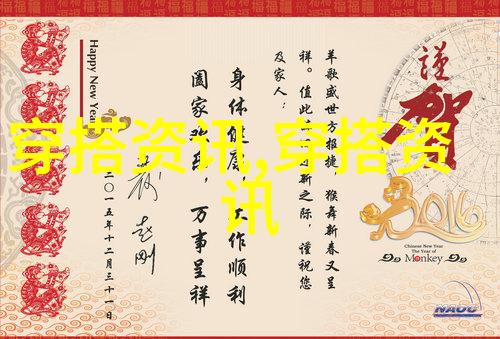 穿搭资讯,穿搭资
讯
谨
贺
2016
Chinese New Year
The Year of
Monkey
羊歌盛世方报捷 猴舞新春又呈
祥。值此 新之际,谨祝您
及家人:
身体健康, 工作顺利
阖家 万事呈祥
二〇一五年十二月三十一日
Happy New Year
NAOC